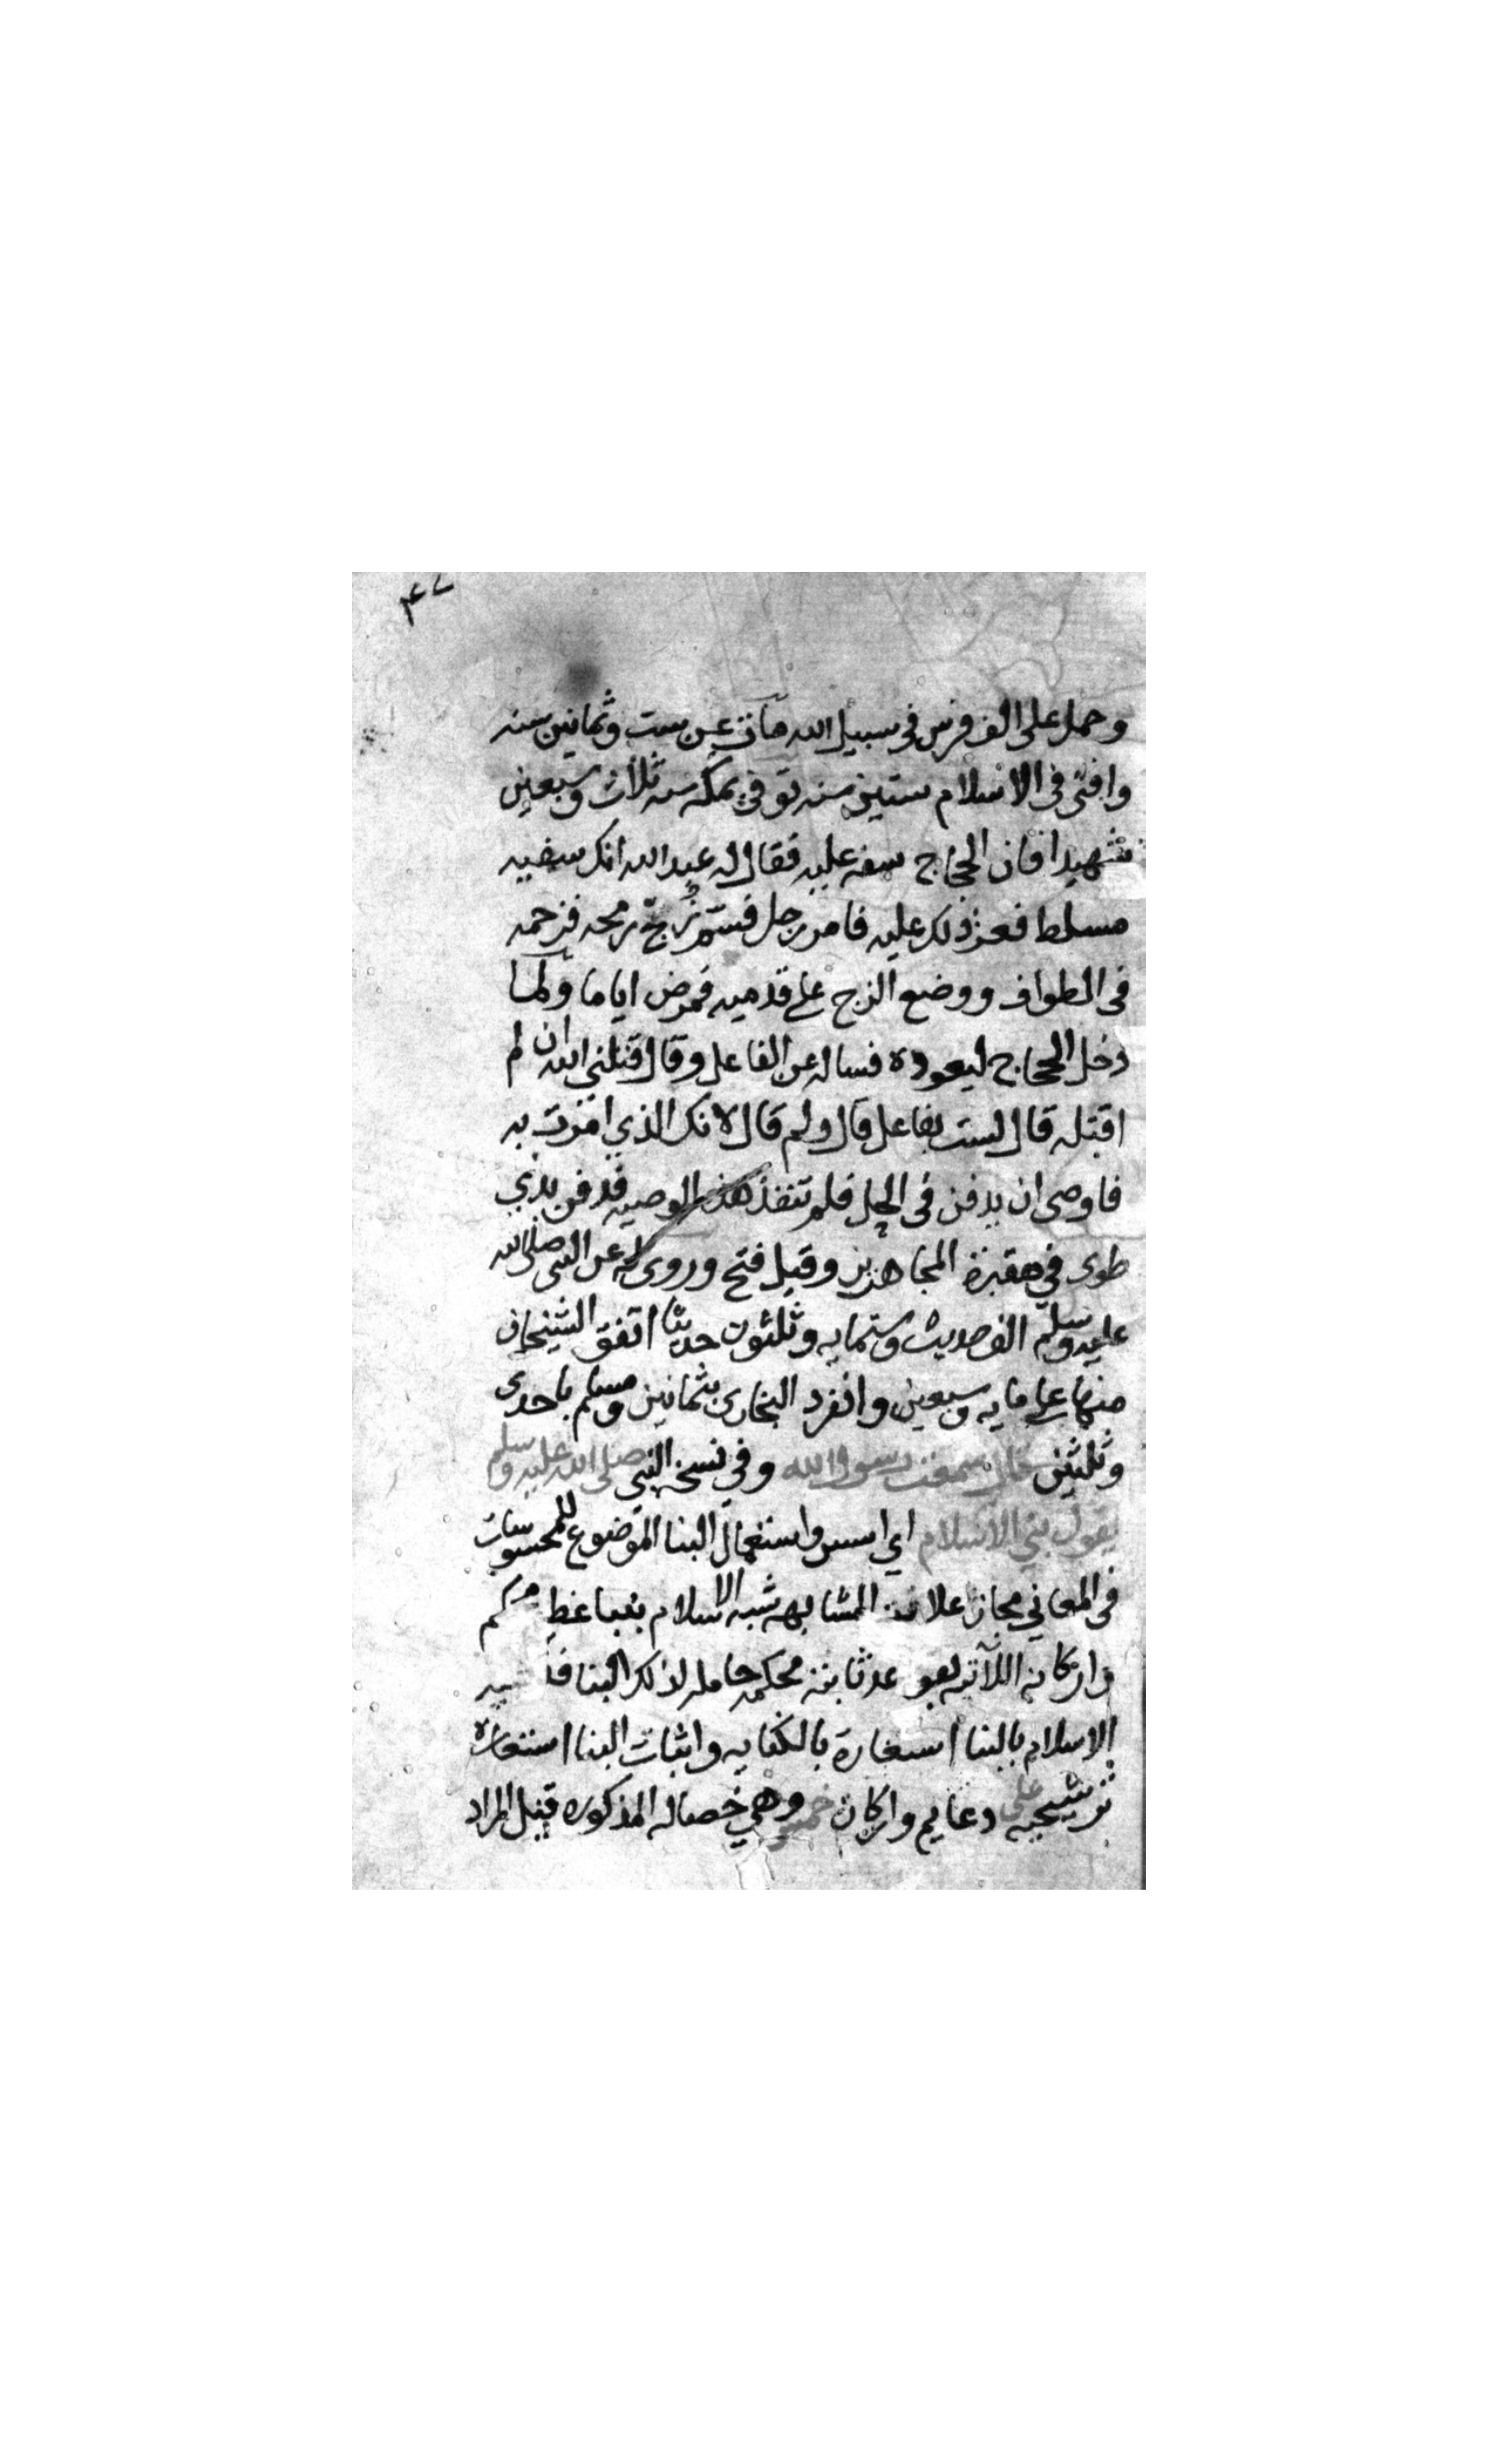 وحمل على الف فرس في سبيل الله مات عن ست وثمانين سنه
وافتى في الاسلام ستين سنه توفي بمكه سنه ثلاث وسبعين
شهيدا فان الحجاج سفه عليه فقال له عبد الله انك سفيه
مسلط فعز ذلك عليه فامر رجل فسم زج رمحه فزحمه
في الطواف ووضع الزج على قدميه فمرض اياما ولما
دخل الحجاج ليعوده فساله عن الفاعل وقال قتلني الله ان لم
اقتله قال لست بفاعل قال ولم قال لانك الذي امرت به
فاوصى ان يدفن في الحل فلم تنفذ هذه الوصيه فدفن بذي
طوى في مقبرة المهاجرين وقيل فتح وروى له عن النبي صلى الله
عليه وسلم الف حديث وستمايه وثلثون حديثا اتفق الشيخان
منها على مايه وسبعين وانفرد البخارى بثمانين ومسلم باحدى
وثلثين قال سمعت رسول الله وفي نسخه النبي صلى الله عليه وسلم
يقول بني الاسلام اي اسس واستعمال البنا الموضوع للمحسوسات
في المعاني مجاز علاقته المشابهه شبه الاسلام ببنا
واركانه الاتيه ثابته محكمه حامله لذلك البنا
الاسلام بالبنا استعارة بالكنايه واثبات البنا استعارة
ترشيحيه على دعايم واركان خمس وهي خصاله المذكوره قيل المراد